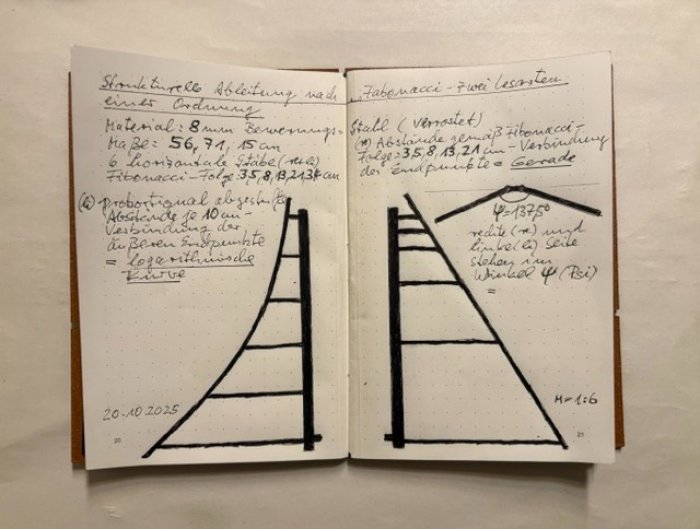 Strukturelle Ableitung nach
einer Ordnung
Material: 8 mm Bewerungs=
Maße: 56, 71, 15 cm
6 horizontale Stäbe (re+li)
Fibonacci-Folge: 3,5,8,13,21,34 cm
(li) proportional abgestufte
Abstände je 10 cm-
Verbindung der
äußeren Endpunkte
= logarithmische
Kurve
20.10.2025
20
Fabonacci - zwei Lesarten
Stahl (verrostet)
(re) Abstände gemäß Fibonacci-
Folge: 3,5,8,13,21 cm - Verbindung
der Endpunkte = Gerade
φ=137,5°
rechte (re) und
linke (li) Seite
stehen im
Winkel φ (Psi)
=
M = 1:6
21